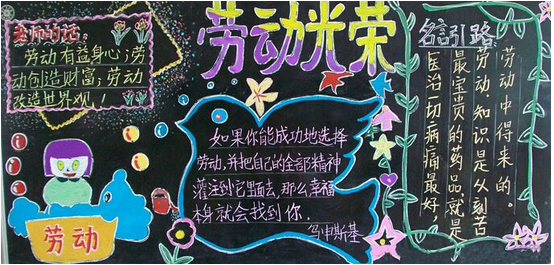 劳动光荣
老师的话:
劳动有益身心;劳
动创造财富;劳动
改造世界观!
劳动
如果你能成功地选择
劳动,并把自己的全部精神
灌注到它里面去,那么幸福
本身就会找到你.
乌申斯基
名言引路
医治一切病痛最好
最宝贵的药品就是
劳动知识是从刻苦
劳动中得来的。